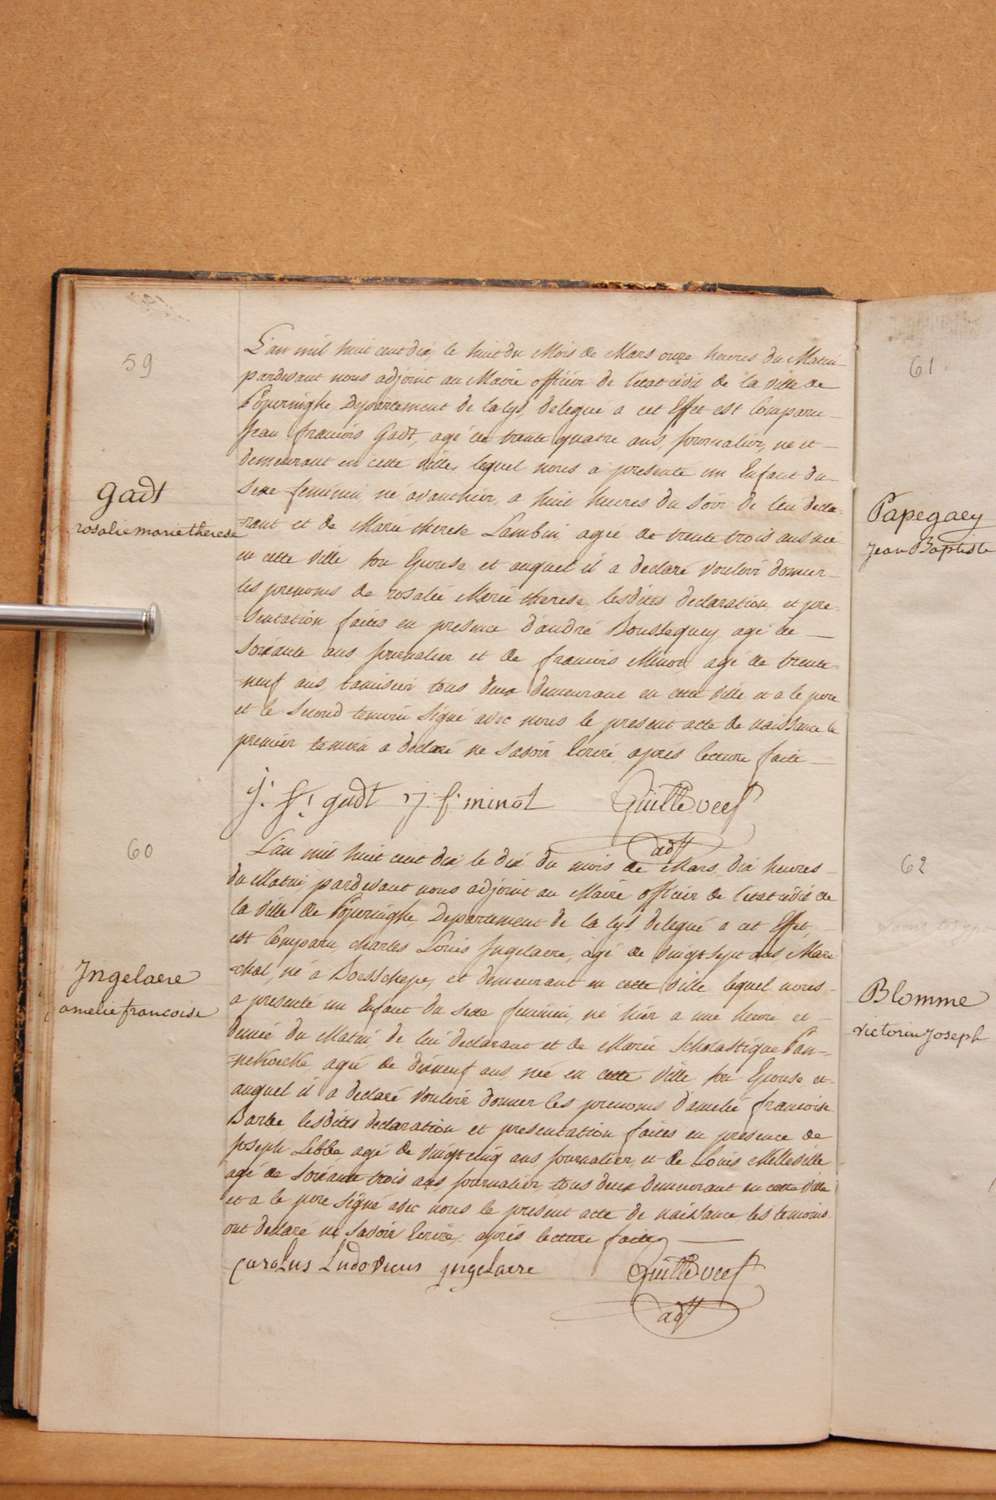 59
Gadt
rosalie marie therese
L'an mil huit cent dix, le huit du Mois de Mars onze heures du Matin
pardevant nous adjoint au Maire officier de l'etat civil de la ville de
Poperinghe Departement de la Lys delegué a cet Effet est Comparu
Jean francois Gadt, agé de trente quatre ans journalier, né et
demeurant en cette ville, lequel nous a presenté un Enfant du
sexe feminin né avanthier a huit heures du soir de lui decla-
rant et de Marie therese Lambin agée de trente trois ans née
en cette ville son Epouse et auquel il a declaré vouloir donner
les prenoms de rosalie Marie therese lesdites declaration et pre-
sentation faites en presence d'andré Boussequey agé de
soixante ans journalier et de francois Minot agé de trente
neuf ans tamisier tous deux demeurant en cette ville et a le pere
et le second temoin signé avec nous le present acte de naissance le
premier temoin a declaré ne savoir Ecrire apres lecture faite
J. F. gadt J. f. minot
adjt
60
Ingelaere
amelie francoise
L'an mil huit cent dix le dix du mois de Mars, dix heures
du Matin pardevant nous adjoint au Maire officier de l'etat civil de
la ville de Poperinghe Departement de la Lys delegué a cet Effet,
est Comparu charles Louis Ingelaere, agé de vingt sept ans Mare-
chal, né a et demeurant en cette ville lequel nous
a presenté un Enfant du sexe feminin, né hier a une heure et
demie du Matin de lui declarant et de Marie Scholastique Pan-
agée de dixneuf ans née en cette ville son Epouse et
auquel il a declaré vouloir donner les prenoms d'amelie francoise
Barbe lesdites declaration et presentation faites en presence de
joseph Lebbe agé de vingt cinq ans journalier et de Louis Melleville
agé de soixante trois ans journalier tous deux demeurant en cette ville
et a le pere signé avec nous le present acte de naissance les temoins
ont declaré ne savoir Ecrire, après lecture faite
Carolus Ludovicus Ingelaere
adjt
61
Papegaey
Jean Baptiste
62
Blomme
victorin Joseph